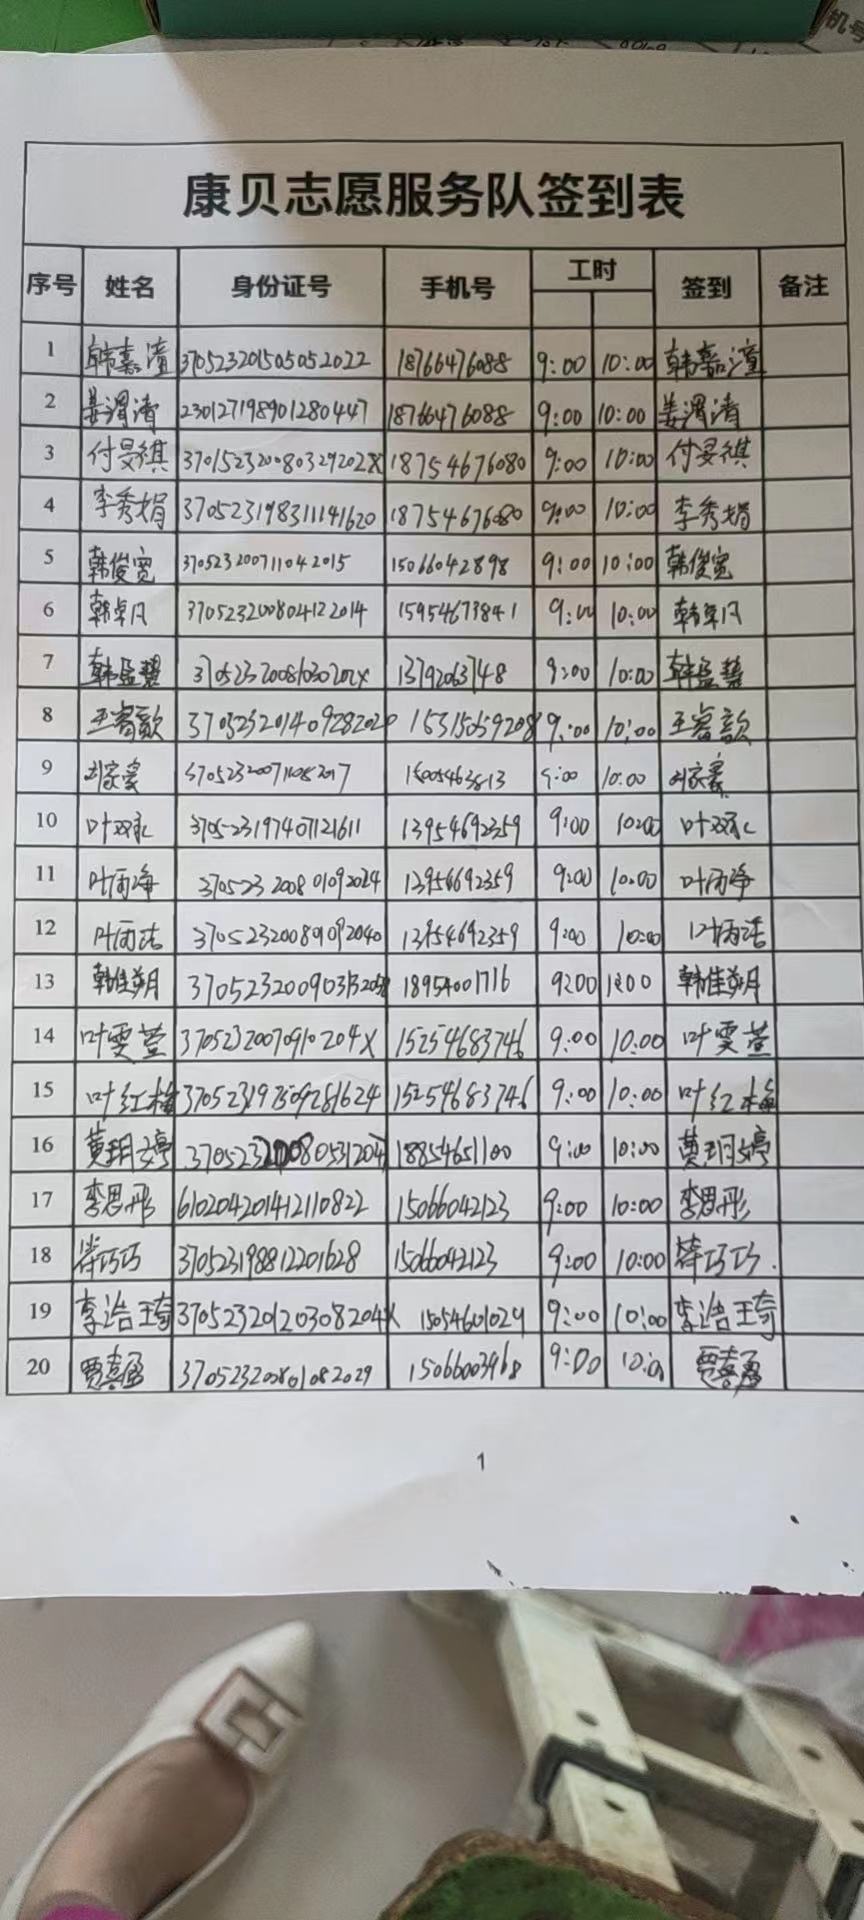 康贝志愿服务队签到表
序号 姓名 身份证号 手机号 工时 签到 备注
1 韩嘉潼 370523201505052022 18766476088 9:00 10:00 韩嘉潼
2 姜渭清 230127198901280447 18766476088 9:00 10:00 姜渭清
3 付旻祺 18754676080 9:00 10:00 付旻祺
4 李秀娟 370523198311141620 18754676080 9:00 10:00 李秀娟
5 韩俊宽 370523200711042015 15066042898 9:00 10:00 韩俊宽
6 韩卓凡 370523200804122014 15954673841 9:00 10:00 韩卓凡
7 韩孟慧 13792063748 9:00 10:00 韩孟慧
8 王睿歆 370523201409282020 9:00 10:00 王睿歆
9 刘家豪 9:00 10:00 刘家豪
10 叶双永 370523197407121611 13954692359 9:00 10:00 叶双永
11 叶雨净 370523200801092024 13954692359 9:00 10:00 叶雨净
12 叶雨洁 370523200801092040 13954692359 9:00 10:00 叶雨洁
13 韩佳朔 18954001716 9:00 10:00 韩佳朔
14 叶雯萱 37052320070910204X 15254683746 9:00 10:00 叶雯萱
15 叶红梅 370523197509281624 15254683746 9:00 10:00 叶红梅
16 黄玥婷 18854651100 9:00 10:00 黄玥婷
17 李思彤 610204201412110822 15066042123 9:00 10:00 李思彤
18 巧巧 370523198812201628 15066042123 9:00 10:00 巧巧
19 李浩琦 37052320120308204X 15054601029 9:00 10:00 李浩琦
20 贾喜盈 370523200801082029 15066003968 9:00 10:00 贾喜盈
1
机号